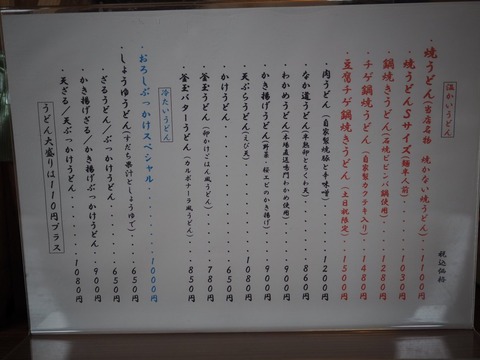 温かいうどん
税込価格
・焼うどん(当店名物 焼かない焼うどん)・・1100円
・焼うどんSサイズ(麺半人前)・・・・・1030円
・鍋焼きうどん(石焼ビビンバ鍋使用)・・・1280円
・チゲ鍋焼うどん(自家製カクテキ入り)・・1480円
・豆腐チゲ鍋焼きうどん(土日祝限定)・・・1500円
・肉うどん(自家製焼豚と辛味噌)・・・・・1200円
・なか道うどん(半熟卵とちくわ天)・・・・860円
・わかめうどん(本場直送鳴門わかめ使用)・・900円
・かき揚げうどん(野菜・桜エビのかき揚げ)・・900円
・天ぷらうどん(えび天)・・・・・・・1080円
・かけうどん・・・・・・・・・・・650円
・釜玉うどん(卵かけごはん風うどん)・・・780円
・釜玉バターうどん(カルボナーラ風うどん)・・850円
冷たいうどん
・おろしぶっかけスペシャル・・・・・・1000円
・しょうゆうどん(すだち果汁としょうゆで)・・650円
・ざるうどん/ぶっかけうどん・・・・・650円
・かき揚げざる/かき揚げぶっかけうどん・・900円
・天ざる/天ぶっかけうどん・・・・・・1080円
うどん大盛りは110円プラス